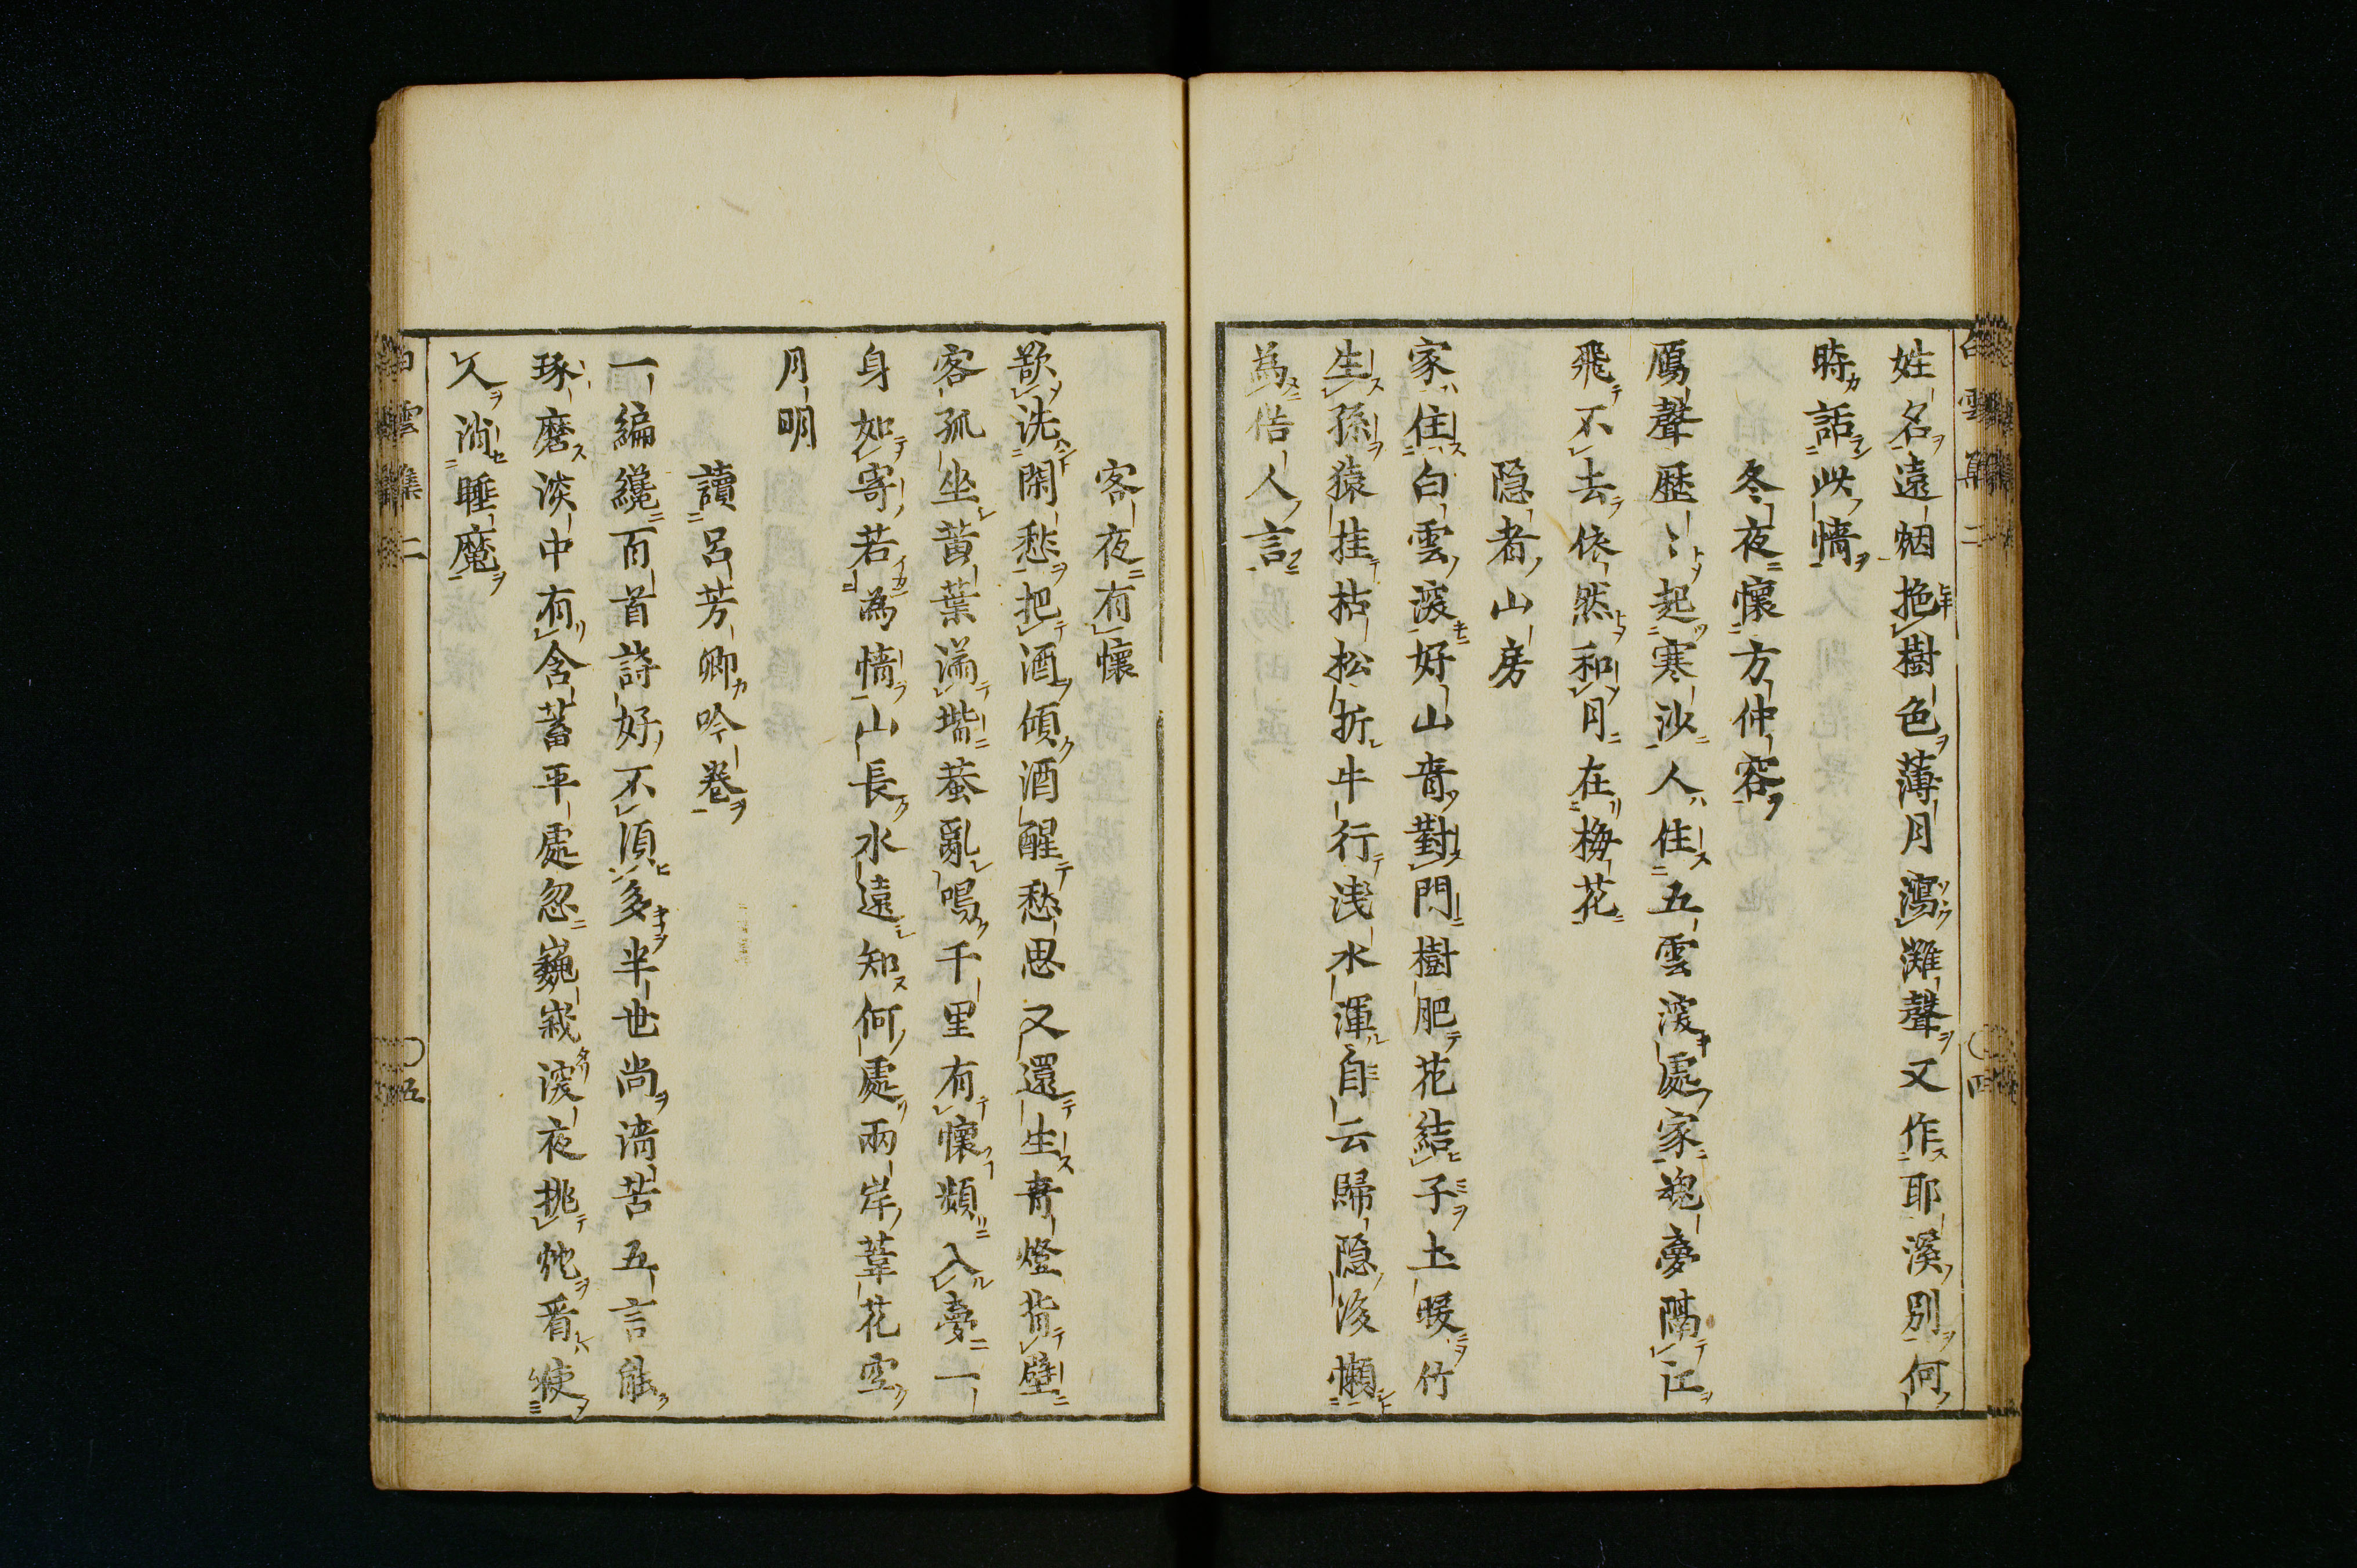 姓名遠烟拖樹色薄月瀉灘聲又作耶溪別何
時話此情
冬夜懷方仲容
鴈聲歷〻起寒沙人住五雲深處家魂夢隔江
飛不去依然和月在梅花
隠者山房
家住白雲深好山青對門樹肥花結子土暖竹
生孫猿挂枯松折牛行浅水渾自云歸隠後懶
為俗人言
客夜有懷
欲洗閑愁把酒傾酒醒愁思又還生青燈背壁
客孤坐黄葉滿堦蛩亂鳴千里有懷頻入夢一
身如寄若為情山長水遠知何處兩岸葦花空
月明
讀呂芳卿吟卷
一編纔百首詩好不須多半世尚清苦五言能
琢磨淡中有含蓄平處忽巍峩深夜挑燈看使
人消睡魔
白雲集二
五